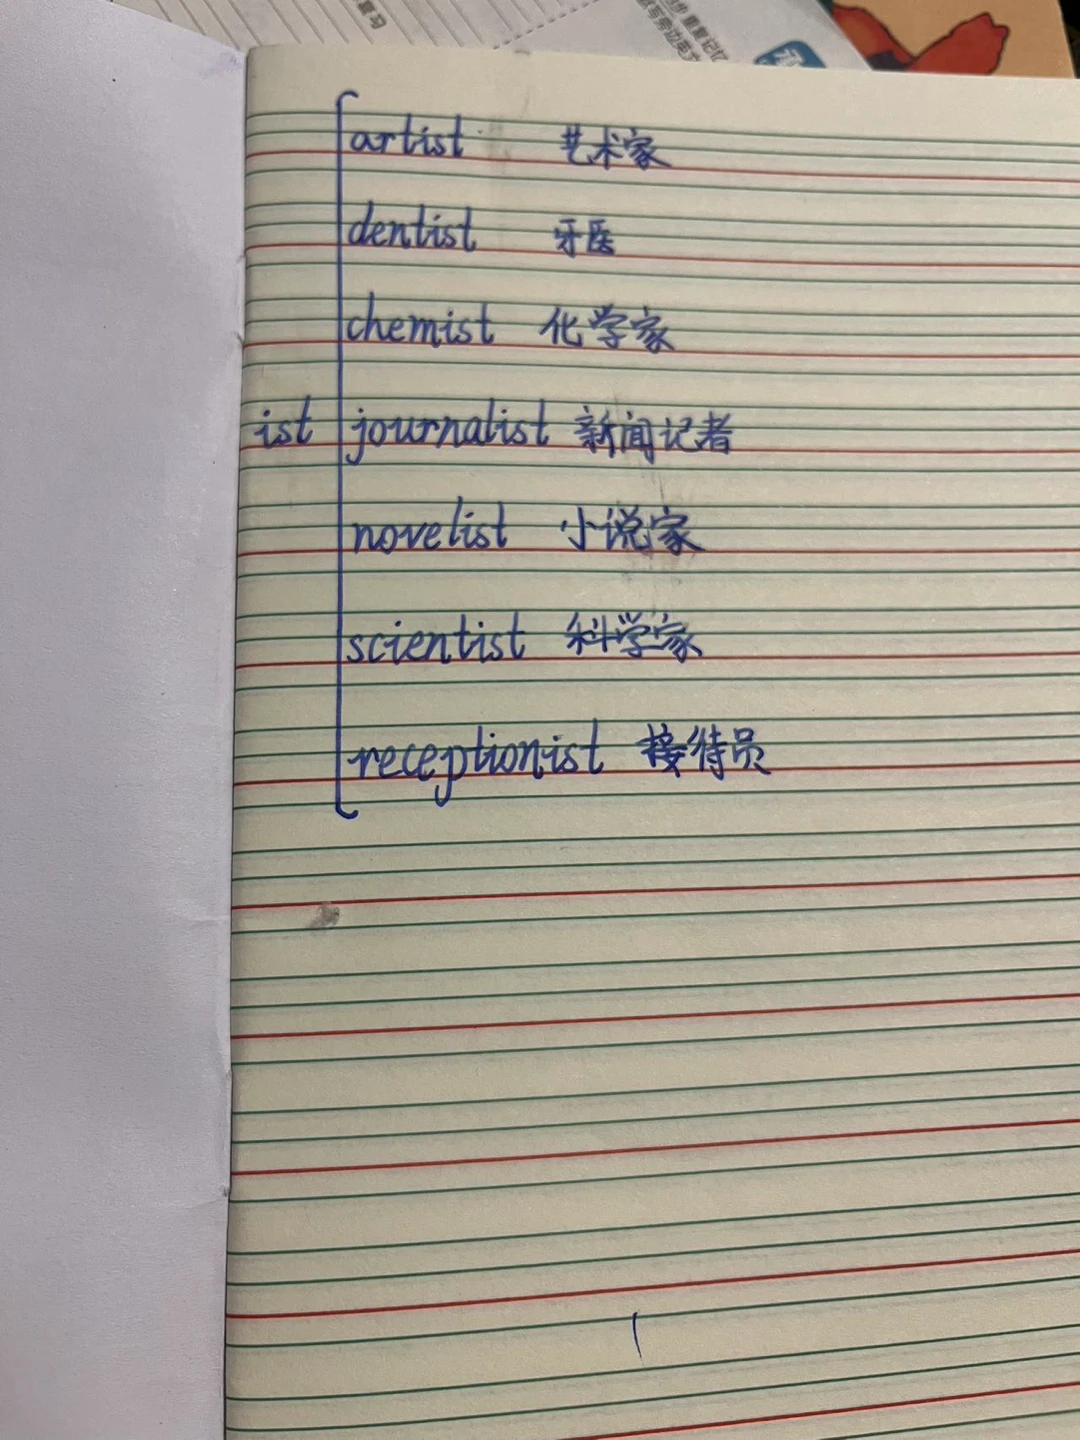 artist 艺术家
dentist 牙医
chemist 化学家
ist journalist 新闻记者
novelist 小说家
scientist 科学家
receptionist 接待员